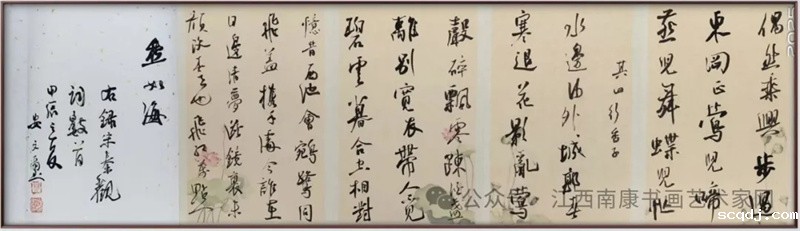 偶然乘興步過
東岡正鶯兒啼
燕兒舞蝶兒忙
其四 行香子
水邊沙外城郭春
寒退花影亂鶯
聲碎飄零疎酒盞
離別寬衣帶人
碧雲暮合空相對
憶昔西池會鵷鷺同
飛蓋攜手處今誰在
日邊清夢斷鏡裏朱
顏改春去也飛紅萬點
愁如海
右錄宋秦觀
詞數首
甲辰之夏
公众号·江西南康书画艺术家网
scqdj.com
2025